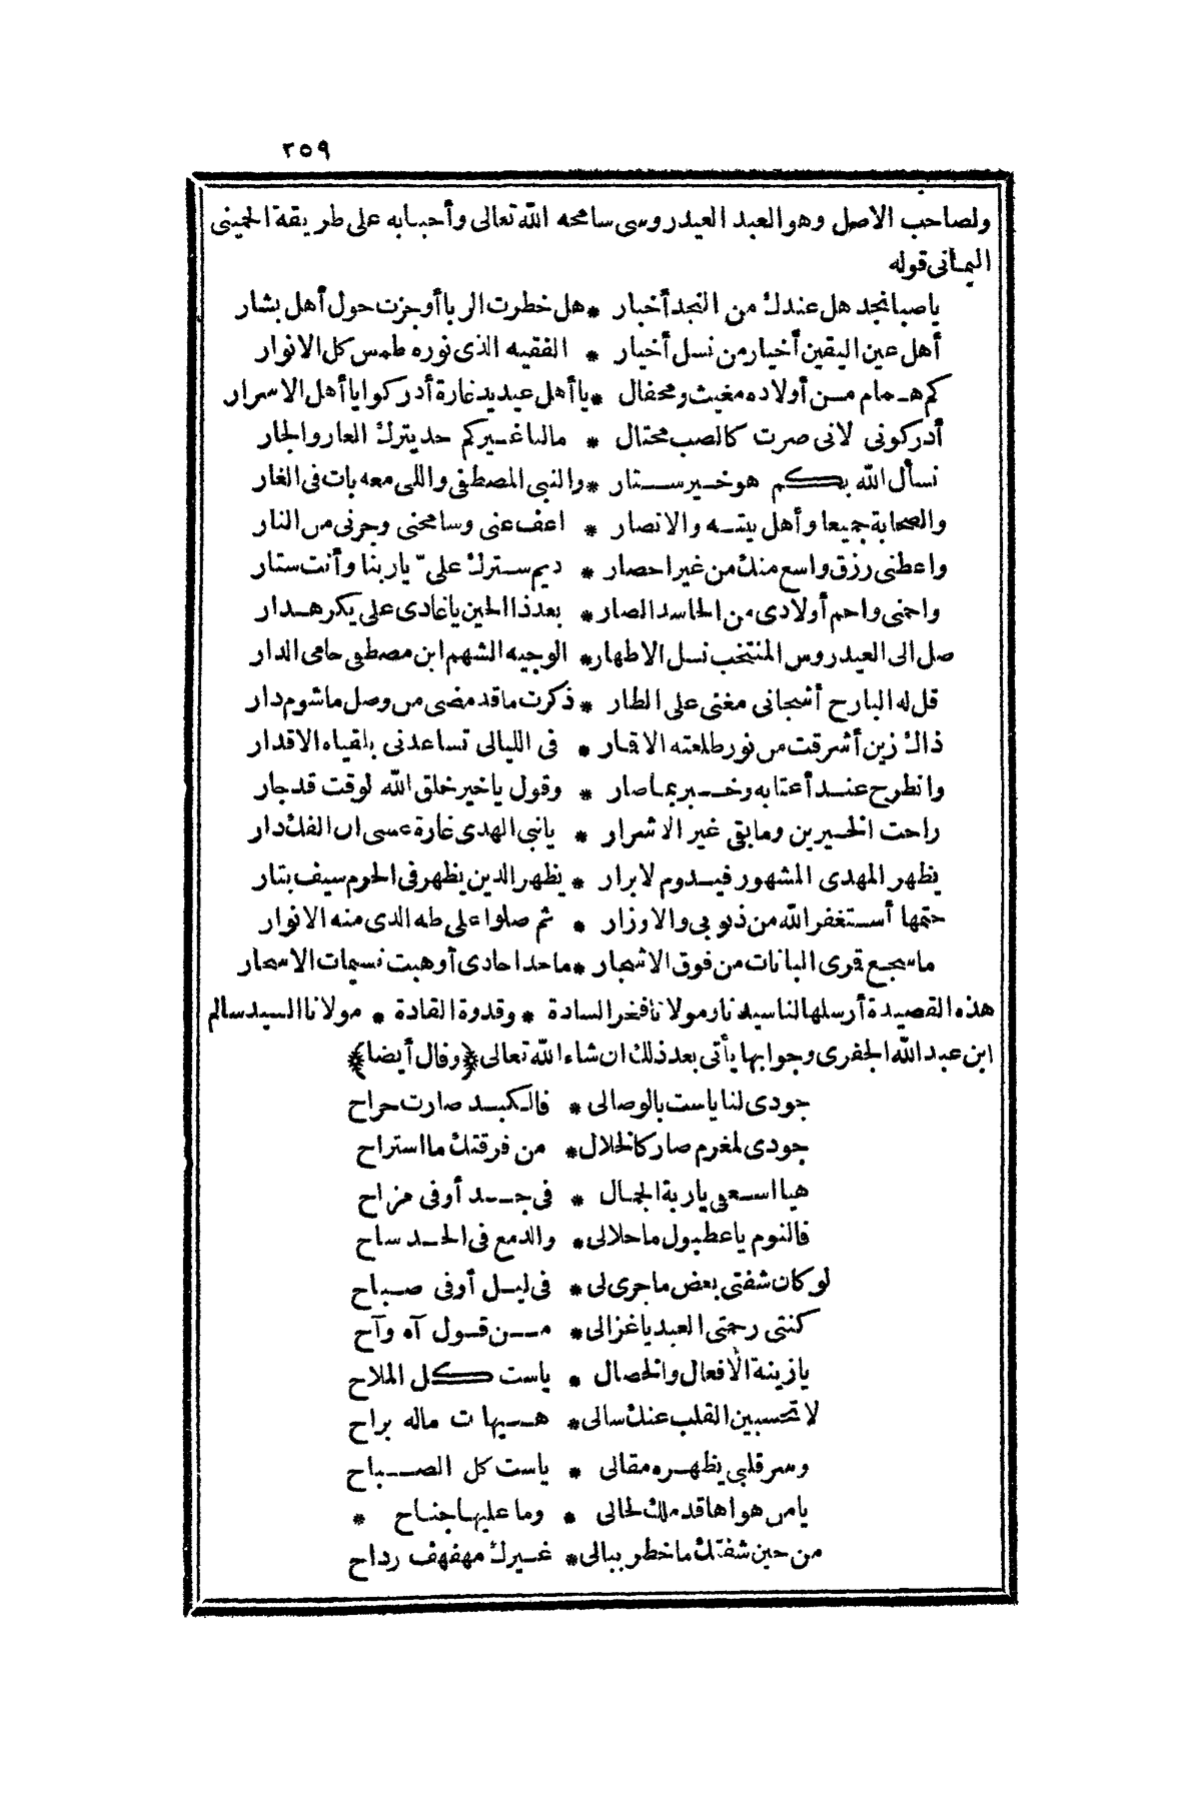 ٢٥٩
ولصاحب الاصل وهو العبد العيدروسى سامحه الله تعالى وأحبابه على طريقة الحمينى
اليمانى قوله
ياصبا نجد هل عندك من النجد أخبار * هل خطرت الربا أو جزت حول أهل بشار
أهل عين اليقين أخيار من نسل أخيار * الفقيه الذى نوره طمس كل الانوار
كم همام من أولاده مغيث ومحفال * يا أهل عبديد غارة أدركوا يا أهل الاسرار
أدركونى لانى صرت كالصب محتال * مالنا غيركم حد يترك العار والجار
نسأل الله بكم هو خير ستار * والنبى المصطفى واللى معه بات فى الغار
والصحابة جميعا وأهل بيته والانصار * اعف عنى وسامحنى وجرنى من النار
واعطنى رزق واسع منك من غير احصار * ديم سترك علىّ ياربنا وأنت ستار
واحمنى واحم أولادى من الحاسد الصار * بعد ذا الحين ياغادى على بكر هدار
صل الى العيدروس المنتخب نسل الاطهار * الوجيه الشهم ابن مصطفى حامى الدار
قل له البارح أشجانى مغنى على الطار * ذكرت ماقد مضى من وصل ماشوم دار
ذاك زين أشرقت من نور طلعته الاقمار * فى الليالى تساعدنى بلقياه الاقدار
وانطرح عند أعتابه وخبر بماصار * وقول ياخير خلق الله لوقت قد جار
راحت الخيرين ومابقى غير الاشرار * يانبى الهدى غارة عسى ان الفلك دار
يظهر المهدى المشهور فيدوم لابرار * يظهر الدين يظهر فى الحرم سيف بتار
ختمها أستغفر الله من ذنوبى والاوزار * ثم صلوا على طه الذى منه الانوار
ماسجع قمرى البانات من فوق الاشجار * ماحدا حادى أوهبت نسيمات الاسحار
هذه القصيدة أرسلها لنا سيدنا ومولانا فخر السادة * وقدوة القادة * مولانا السيد سالم
ابن عبد الله الجفرى وجوابها يأتى بعد ذلك ان شاء الله تعالى ﴿وقال أيضا﴾
جودى لنا ياست بالوصالى * فالكبد صارت جراح
جودى لمغرم صار كالخلال * من فرقتك ما استراح
هيا اسعى ياربة الجمال * فى جد أوفى مزاح
فالنوم ياعطبول ماحلالى * والدمع فى الخد ساح
لو كان شفتى بعض ماجرى لى * فى ليل أوفى صباح
كنتى رحمتى العبد ياغزالى * من قول آه وآح
يازينة الأفعال والخصال * ياست كل الملاح
لا تحسبين القلب عنك سالى * هيهات ماله براح
وسر قلبى يظهره مقالى * ياست كل الصباح
يامن هواها قد ملك لحالى * وما عليها جناح *
من حين شفتك ماخطر ببالى * غيرك مهفهف رداح